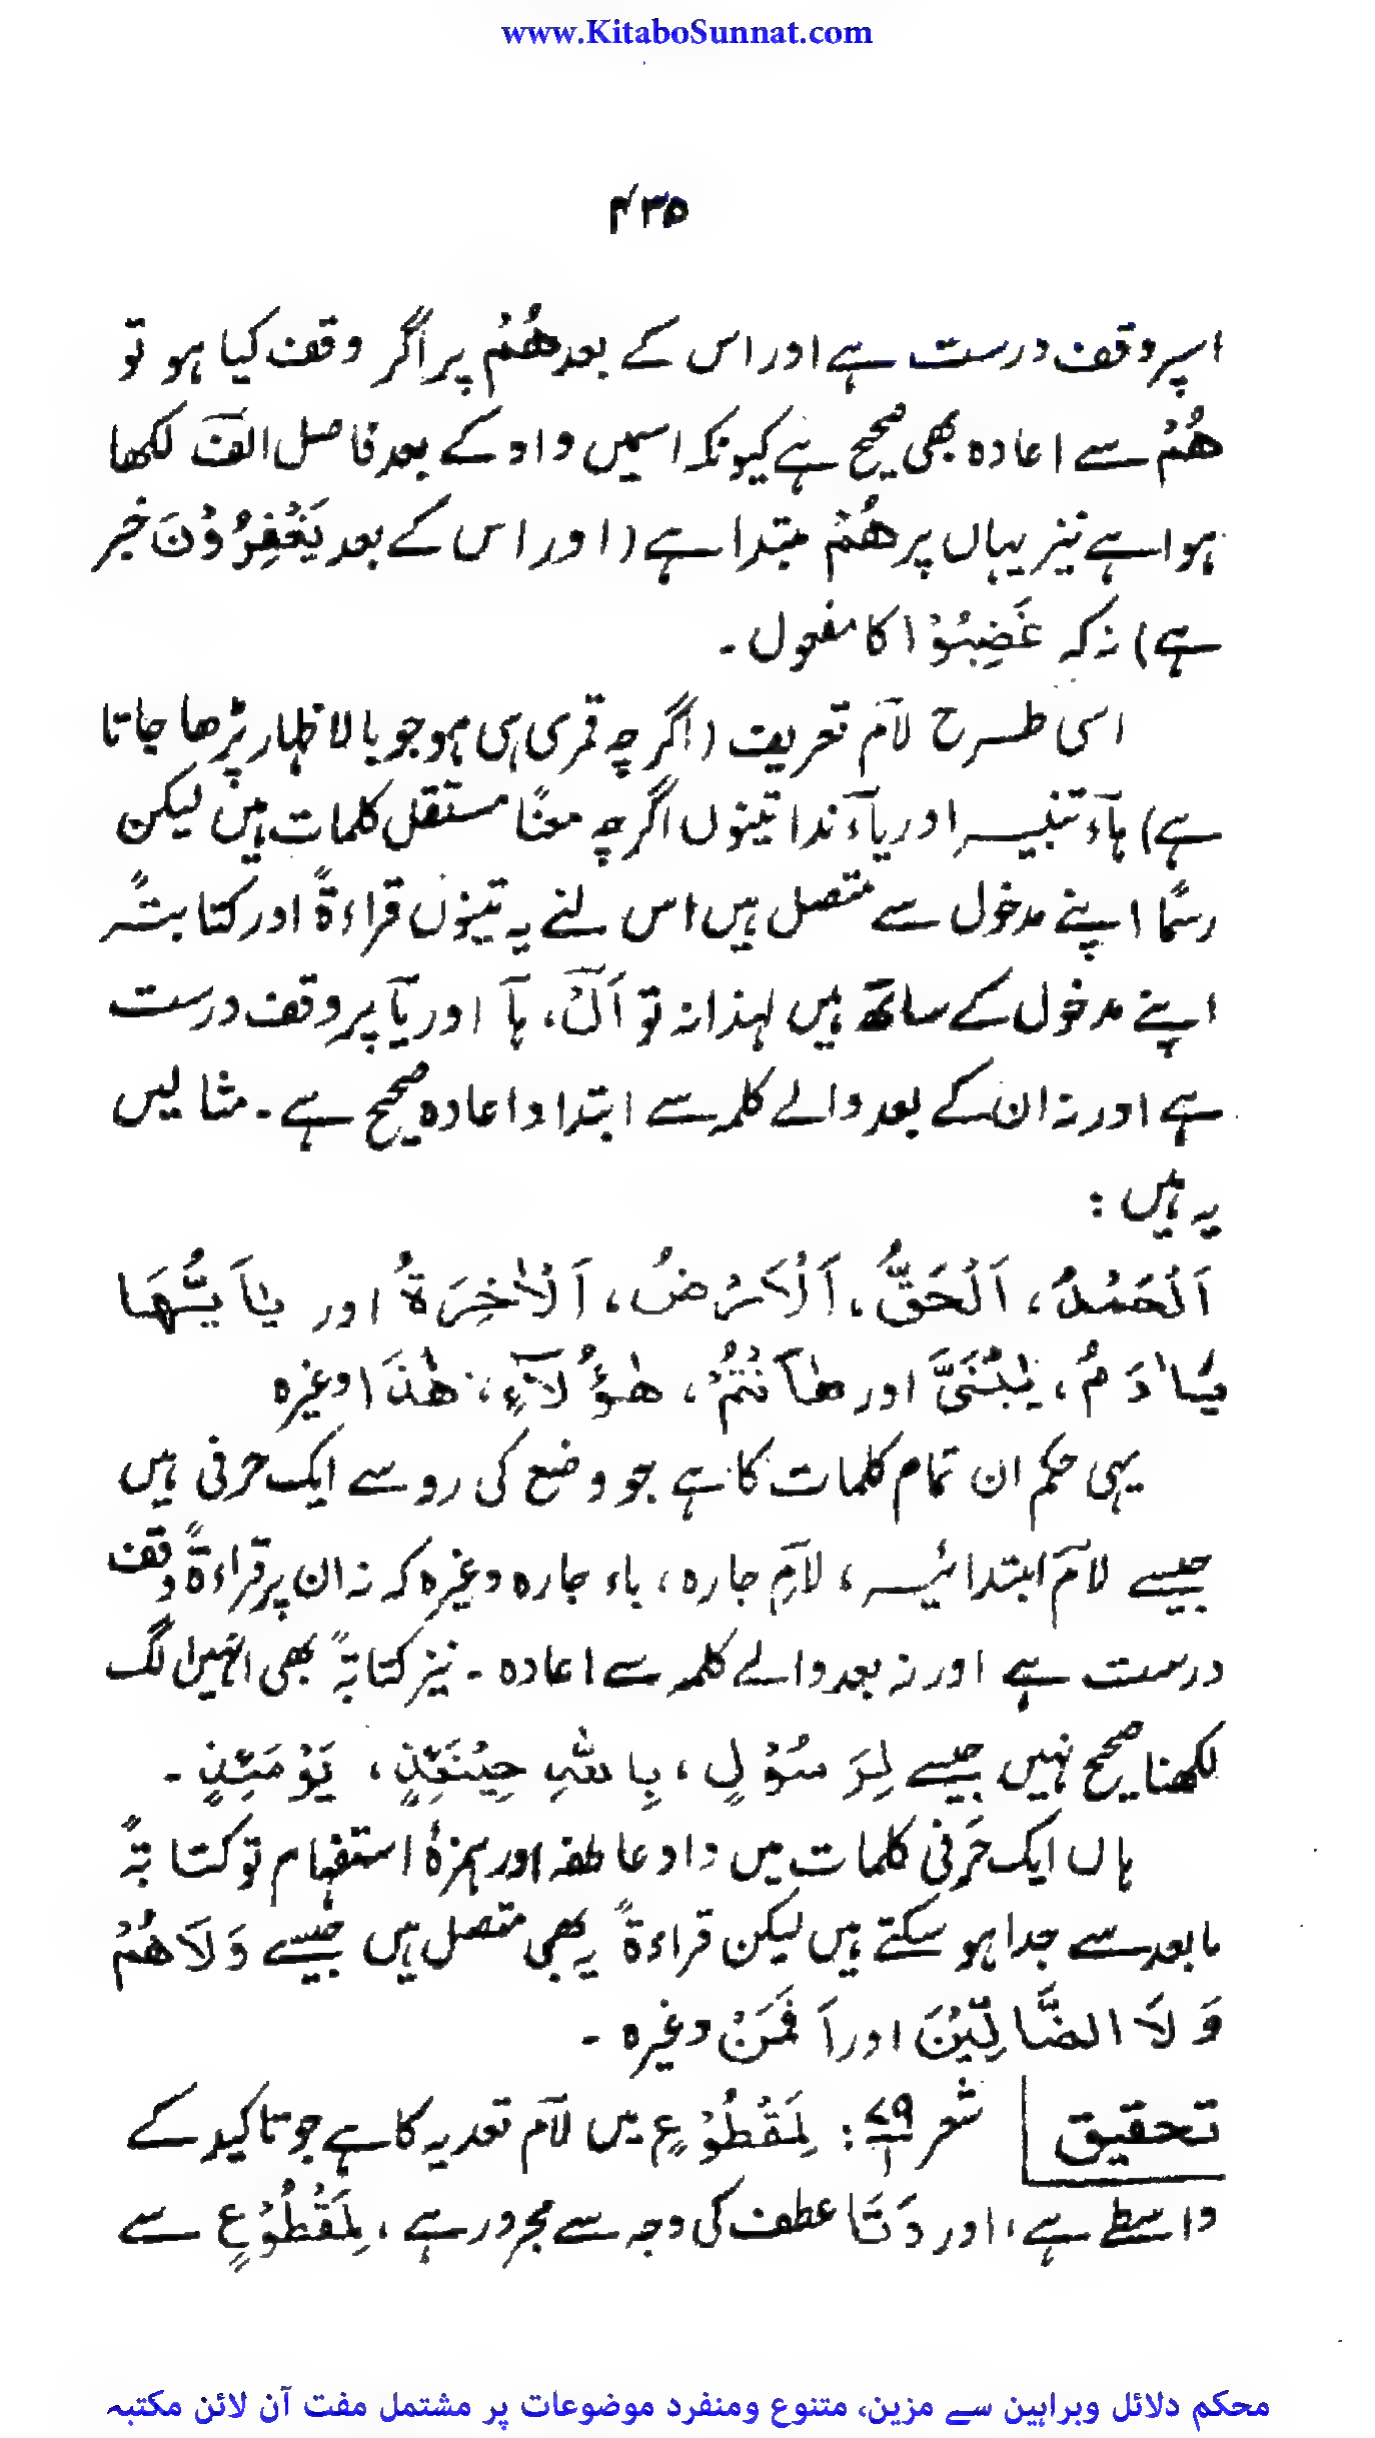 www.KitaboSunnat.com
۴۳۵
اسپر وقف درست ہے اور اس کے بعد هُمْ پر اگر وقف کیا ہو تو
هُمْ سے اعادہ بھی صحیح ہے کیونکہ اسمیں واو کے بعد فاصل الف لکھا
ہوا ہے نیز یہاں پر هُمْ مبتدا ہے (اور اس کے بعد يَغْفِرُوْنَ خبر
ہے) نہ کہ غَضِبُوْا کا مفعول ۔
اسی طرح لام تعریف (اگرچہ قمری ہی ہو جو بالاظہار پڑھا جاتا
ہے) ہآء تنبیہ اور یآء ندا تینوں اگرچہ معنًا مستقل کلمات ہیں لیکن
رسمًا اپنے مدخول سے متصل ہیں اس لئے یہ تینوں قراءۃً اور کتابۃً
اپنے مدخول کے ساتھ ہیں لہذا نہ تو اَلْ، ہآ اور یآ پر وقف درست
ہے اور نہ ان کے بعد والے کلمہ سے ابتدا و اعادہ صحیح ہے ۔ مثالیں
یہ ہیں :
اَلْحَمْدُ، اَلْحَقُّ، اَلْاَرْضُ، اَلْاٰخِرَةُ اور يٰاَيُّهَا
يٰاٰدَمُ، يٰبُنَيَّ اور هٰاَنْتُمْ، هٰؤُلَآءِ، هٰذَا وغیرہ
یہی حکم ان تمام کلمات کا ہے جو وضع کی رو سے ایک حرفی ہیں
جیسے لام ابتدائیہ، لامِ جارہ، باء جارہ وغیرہ کہ نہ ان پر قراءۃً وقف
درست ہے اور نہ بعد والے کلمہ سے اعادہ ۔ نیز کتابۃً بھی انہیں الگ
لکھنا صحیح نہیں جیسے لِرَسُوْلٍ، بِاللّٰهِ حِيْنَئِذٍ، يَوْمَئِذٍ ۔
ہاں ایک حَرفی کلمات میں واو عاطفہ اور ہمزۂ استفہام تو کتابۃً
مابعد سے جدا ہو سکتے ہیں لیکن قراءۃً یہ بھی متصل ہیں جیسے وَلَاهُمْ
وَلَا الضَّالِّيْنَ اور اَفَمَنْ وغیرہ ۔
تحقیق شعر ۷۹/۱ : لِمَقْطُوْعٍ میں لام تعدیہ کا ہے جو تاکید کے
واسطے ہے، اور وَتَا عطف کی وجہ سے مجرور ہے، لِمَقْطُوْعٍ سے
محکم دلائل وبراہین سے مزین، متنوع ومنفرد موضوعات پر مشتمل مفت آن لائن مکتبہ